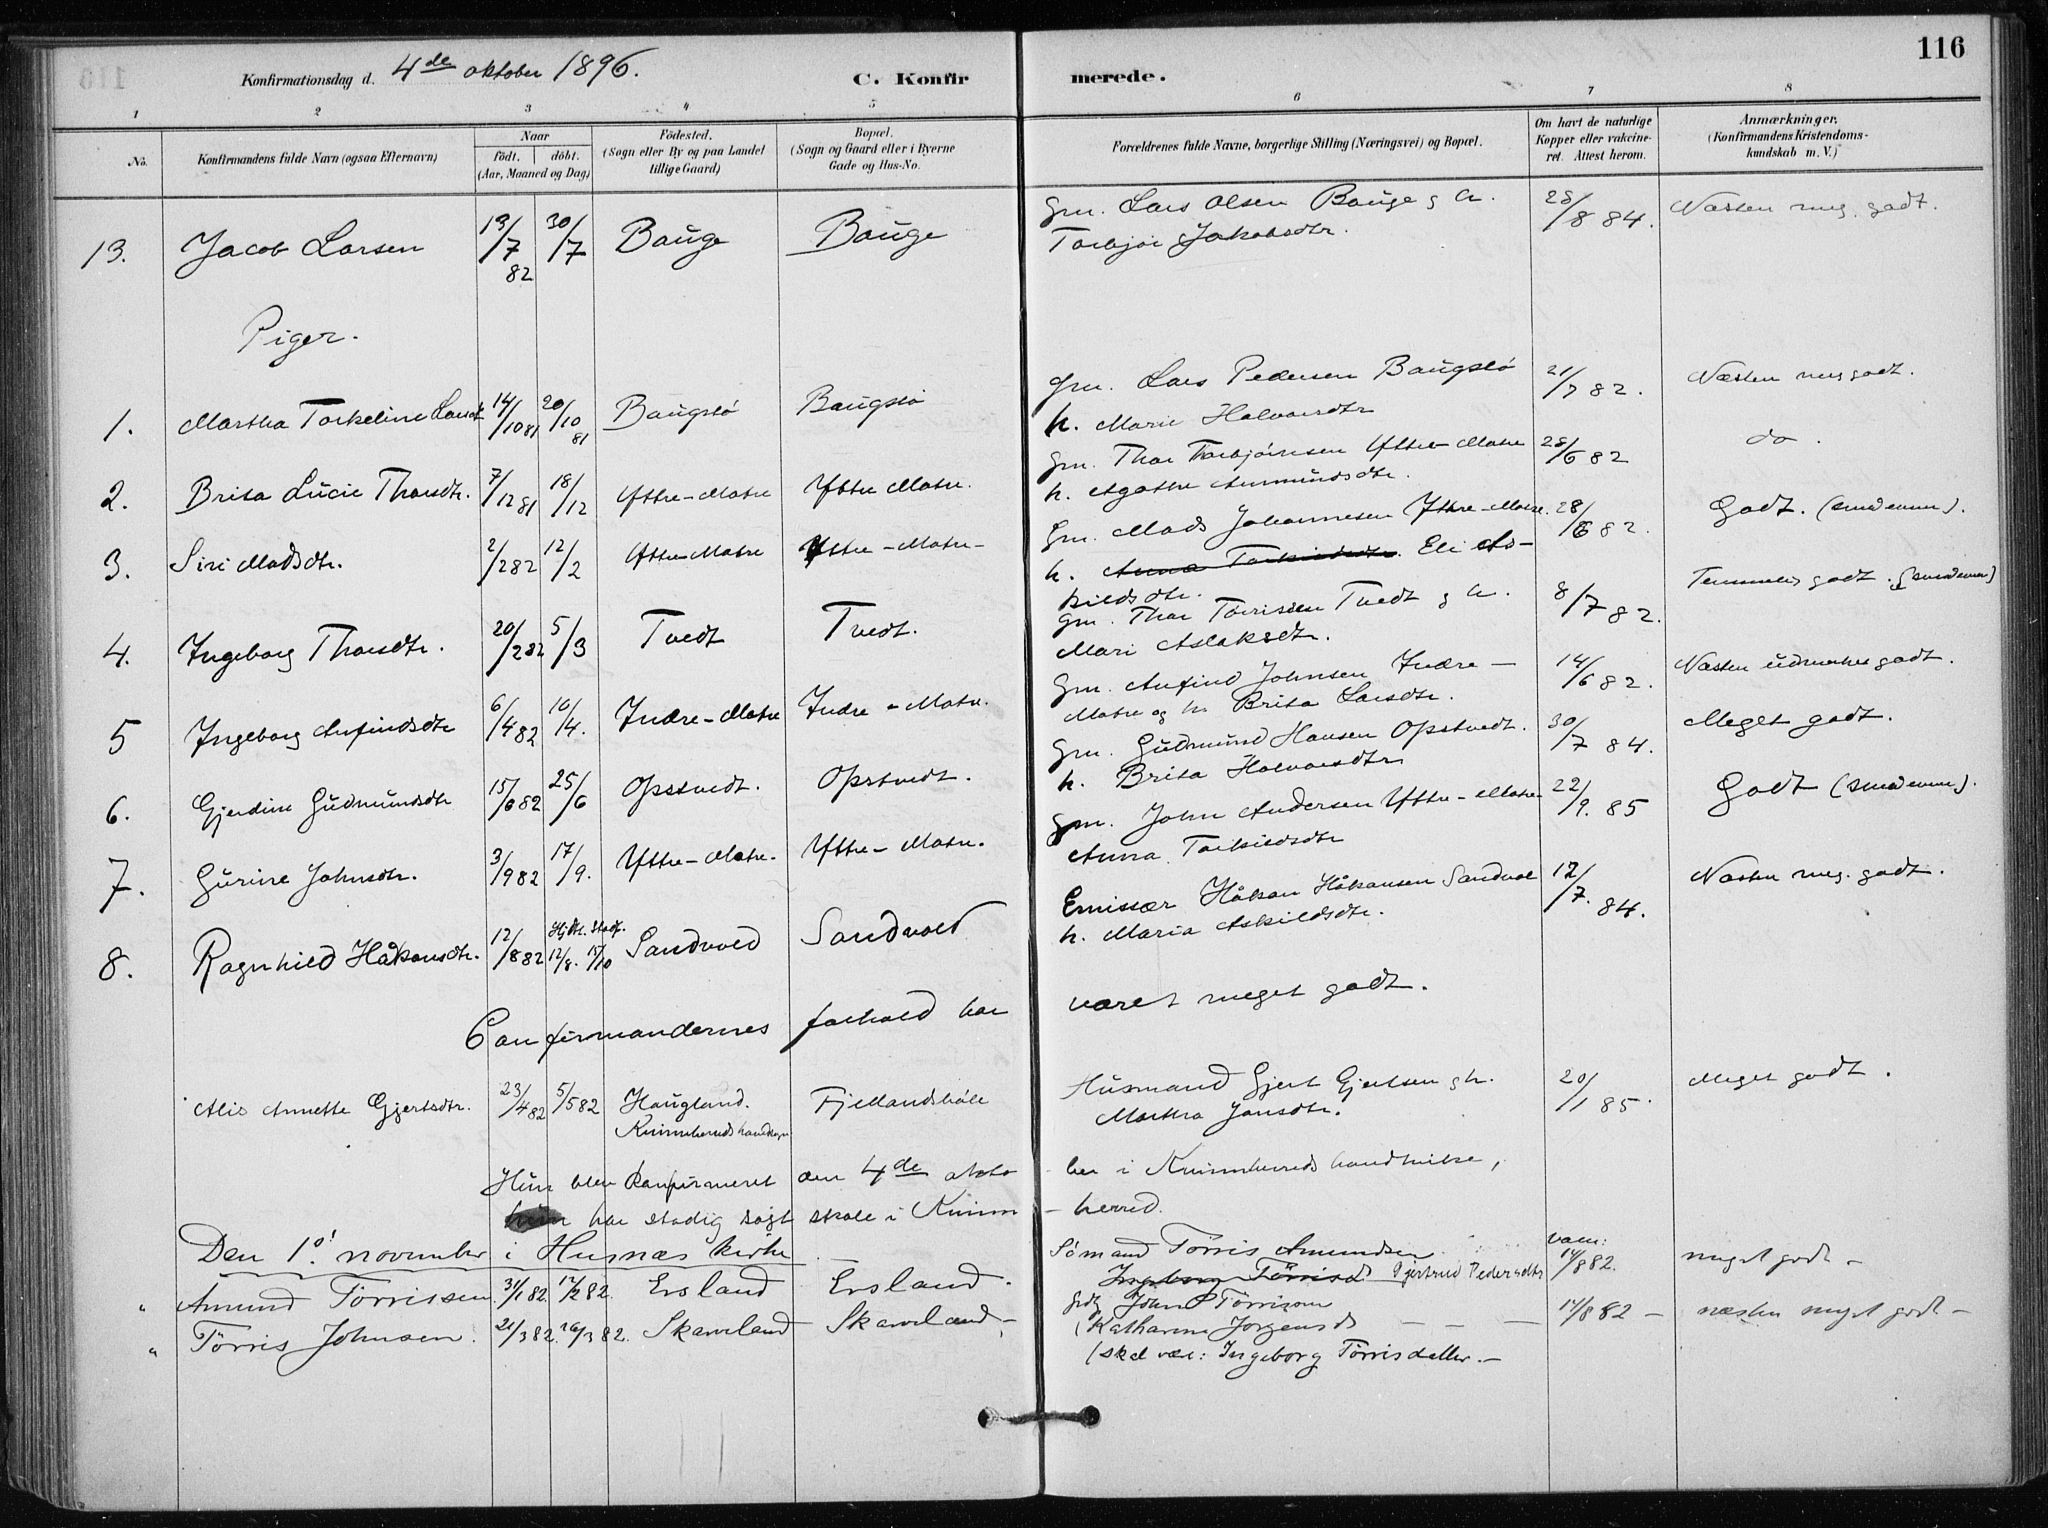 116
Konfirmationsdag d. 4de oktober 1896. C. Konfirmerede.
1 2 3 4 5 6 7 8
No. Konfirmandens fulde Navn (ogsaa Efternavn) Naar födt. döbt. (Aar, Maaned og Dag) Födested. (Sogn eller By og paa Landet tillige Gaard) Bopæl. (Sogn og Gaard eller i Byerne Gade og Hus-No. Forældrenes fulde Navne, borgerlige Stilling (Næringsvei) og Bopæl. Om havt de naturlige Kopper eller vakcineret. Attest herom. Anmærkninger. (Konfirmandens Kristendomskundskab m. V.)
13. Jacob Larsen 13/7 82 30/7 Bauge Bauge Gm. Lars Olsen Bauge g h. 28/8 84. Næsten meg. godt.
Torbjør Jakobsdtr.
Piger.
1. Martha Torkeline Larsdt 14/10 81 20/10 81 Baugslø Baugslø Gm. Lars Pedersen Baugslø 21/7 82. Næsten meg godt.
h. Marie Halvorsdtr
2. Brita Lucie Thorsdtr. 7/12 81 18/12 Yttre-Matre Yttre Matre. Gm. Thor Torbjørnsen Yttre-Matre 28/6 82 do.
h. Agathe Aamundsdtr.
3. Siri Madsdtr. 2/2 82 12/2 Yttre-Matre Yttre-Matre- Gm. Mads Johannesen Yttre-Matre. 28/6 82. Godt. (smd emm).
h. Anna Torkildsdtr. Eli As-
kildsdtr.
4. Ingeborg Thorsdtr. 20/2 82 5/3 Tvedt Tvedt. Gm. Thor Tørrisen Tvedt g h. 8/7 82. Temmelig godt.
Mari Aslaksdtr.
5 Ingeborg Anfindsdtr 6/4 82 10/4. Indre-Matre Indre-Matre. Gm. Anfind Johnsen Indre- 14/6 82. Næsten udmerket godt.
Matre og h. Brita Larsdtr.
6. Gjerdine Gudmundsdtr 15/6 82 25/6 Opstvedt. Opstvedt. Gm. Gudmund Hansen Opstvedt. 30/7 84. Meget godt.
h. Brita Halvorsdtr
7. Gurine Johnsdtr. 3/9 82 17/9. Yttre-Matre. Yttre-Matre. Gm. John Andersen Yttre-Matre- 22/9. 85 Godt
Anna Torkildsdtr
8. Ragnhild Håkonsdtr. 12/8 82 Hjdb. Stadf. 12/8. 15/10 Sandvold Sandvold Emissær Håkon Håkonsen Sandvol 12/7. 84. Næsten meg. godt.
h. Maria Askildsdtr.
Confirmandernes forhold har været meget godt.
Alis Annette Gjertsdtr. 23/4 82 5/5 82 Haugland. Kvinnherreds hovedsogn Fjellandsbøle Husmand Gjert Gjertsen g h. 20/1 85. Meget godt.
Martha Jansdtr.
Hun blev konfirmeret den 4de oktober i Kvinnherreds
hun har stadig søgt skole i Kvinn-herred.
Den 1o! november i Husnæs kirke
" Amund Tørrissen 31/1 82. 12/2 82. Ersland Ersland. Sømand Tørris Amundsen vacc: 14/8 82. meget godt -
Ingeborg Tørrisd Gjertrud Pedersdtr
" Tørris Johnsen. 21/3 82. 26/3 82. Skarveland Skarveland,- John Tørrisson 14/8 82 - næsten meget godt -
(Katharina Jørgensd - - -
(skal være: Ingeborg Tørrisdatter.-